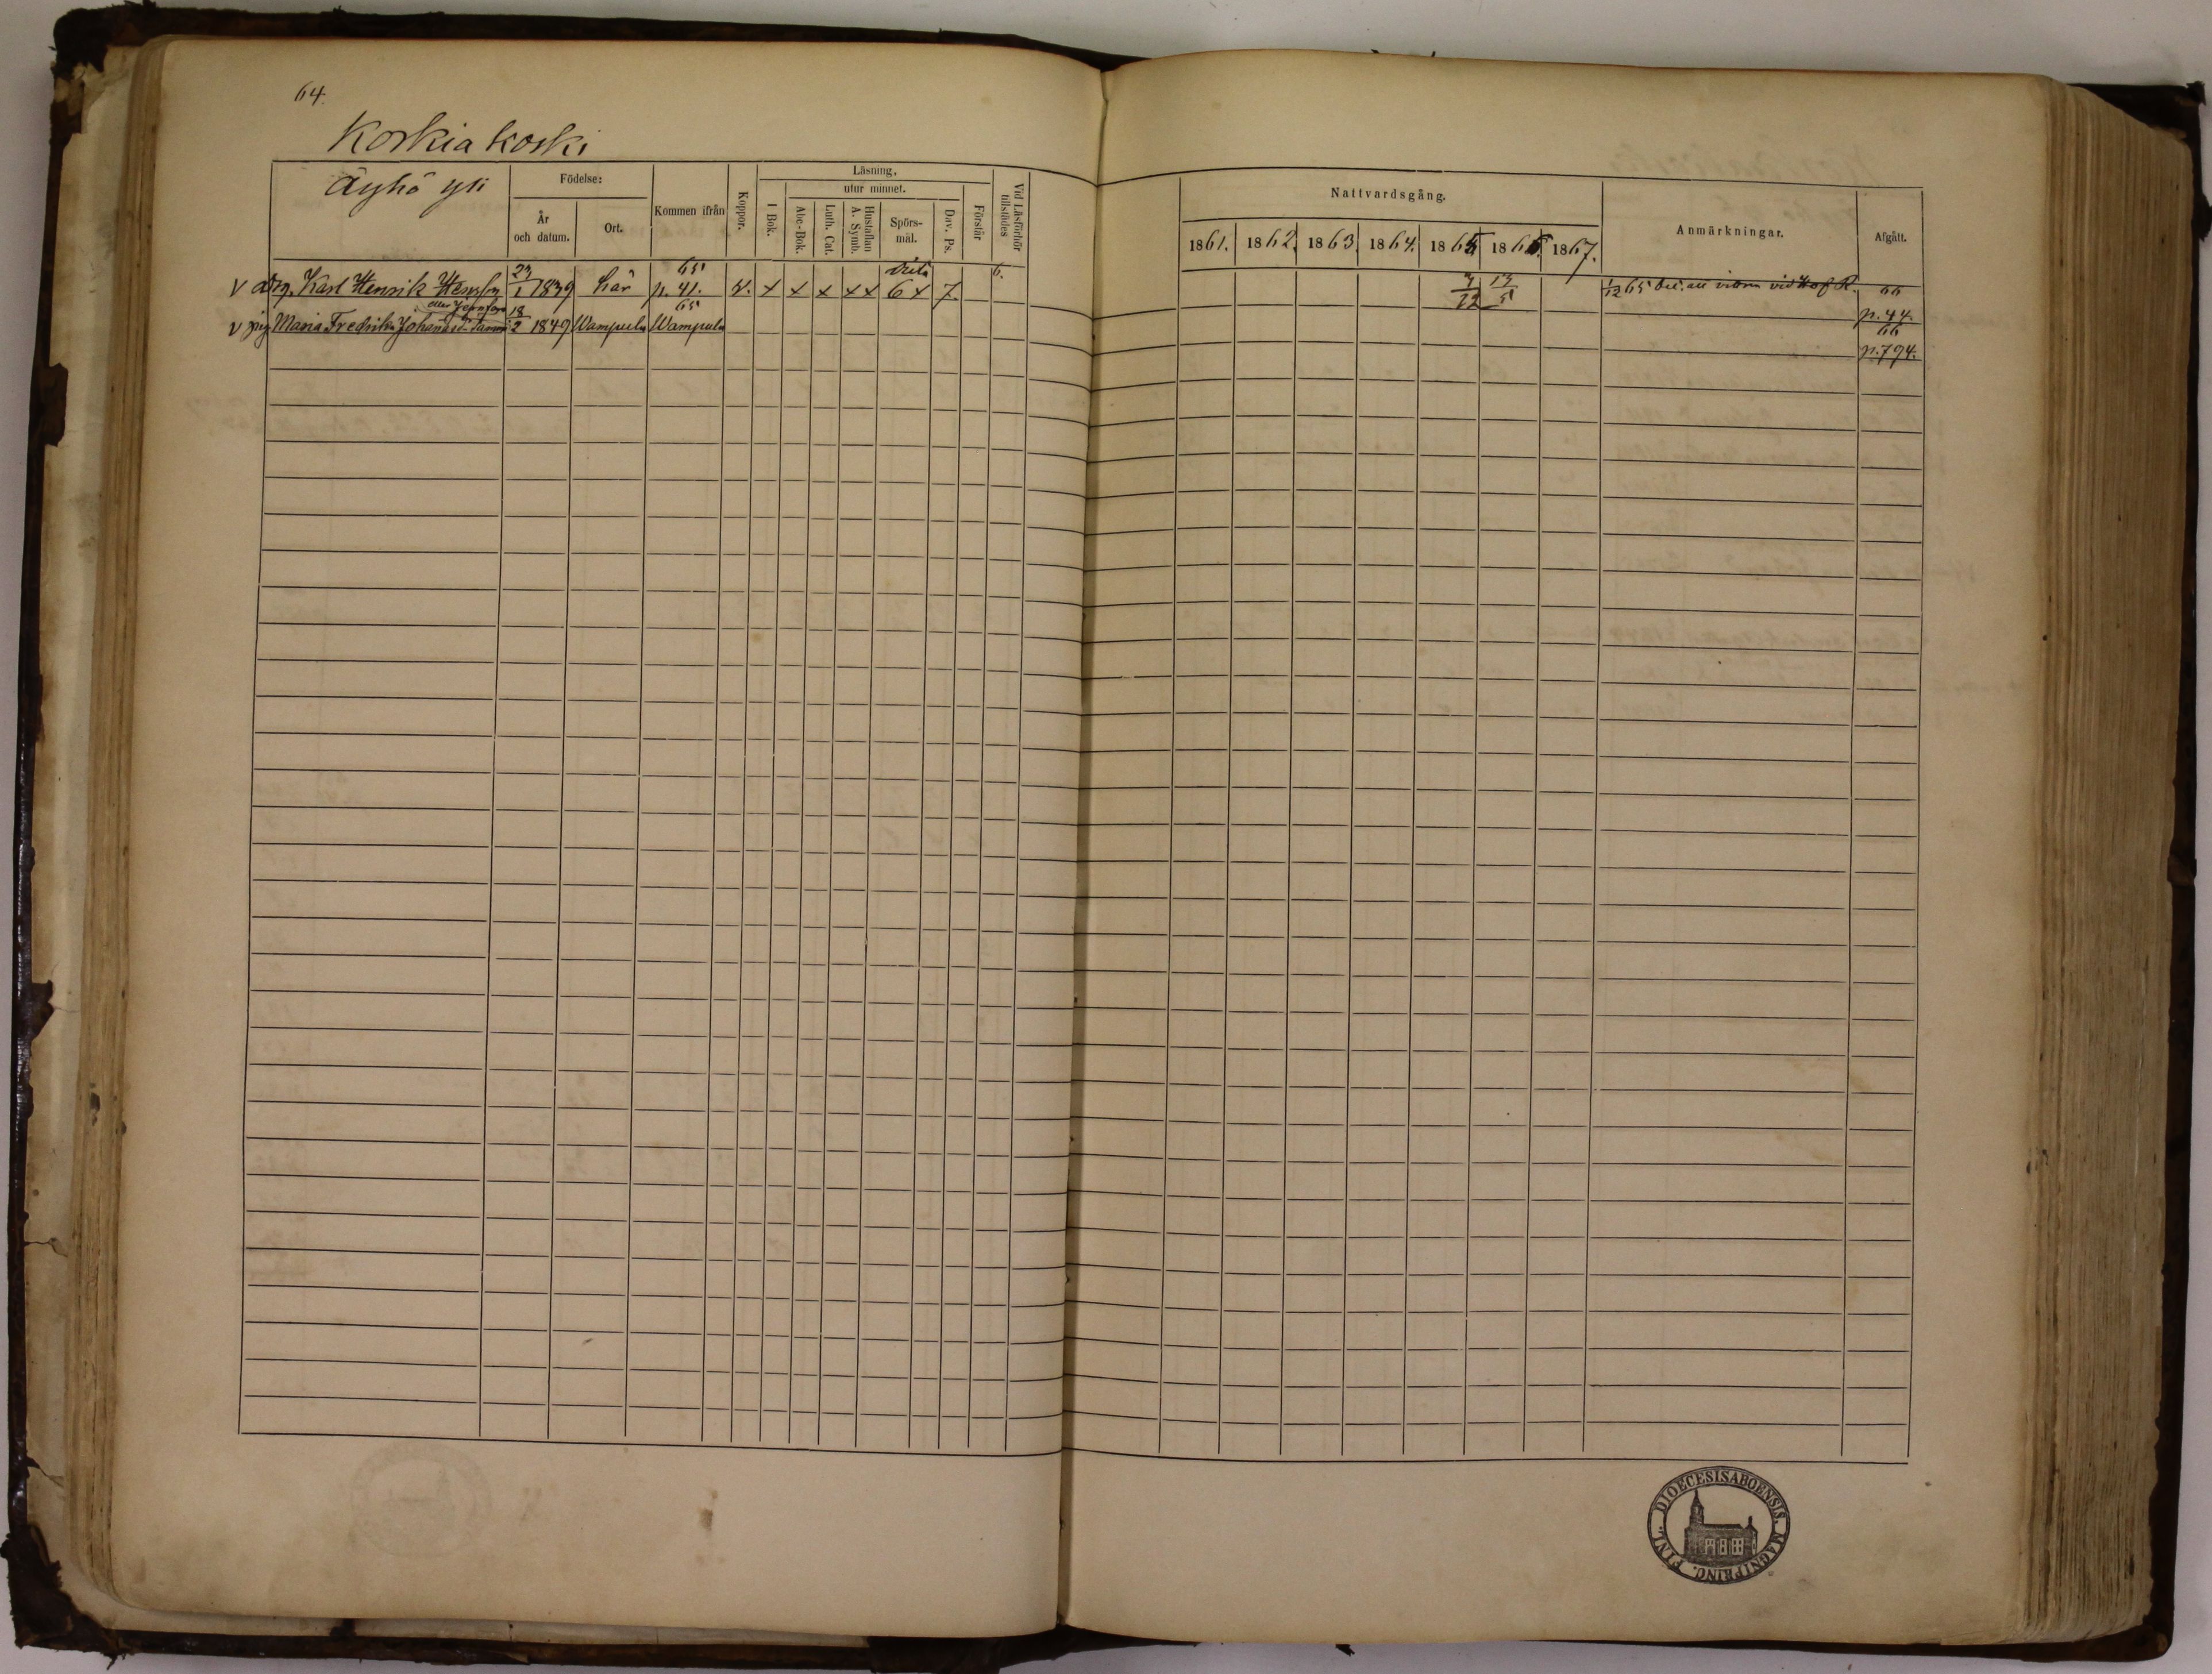 64.
Koskia koski
Äyhö yli
Födelse:
År och datum.
Ort.
Kommen ifrån
Koppor.
Läsning,
utur minnet.
I Bok.
Abc-Bok.
Luth. Cat.
Hustaflan A. Symb.
Spörs-mål.
Dav. Ps.
Förstår
Vid Läsförhör tillstädes
Nattvardsgång.
1861. 1862. 1863. 1864. 1865. 1866. 1867.
Anmärkningar.
Afgått.
v drg. Karl Henrik Henrsson 23/1 1839 här 65 p. 41. v. x x x x x 6 x 7. 6. 3/12 13/5 1/12 65 vid Hof R. 66 p. 44.
eller Jernfors
v pig. Maria Fredrika Johansd. 18/2 1849 Wampula 65 Wampula 66 p. 794.
DIOECESIS ABOENSIS. MAGNI PRINC. FINL.